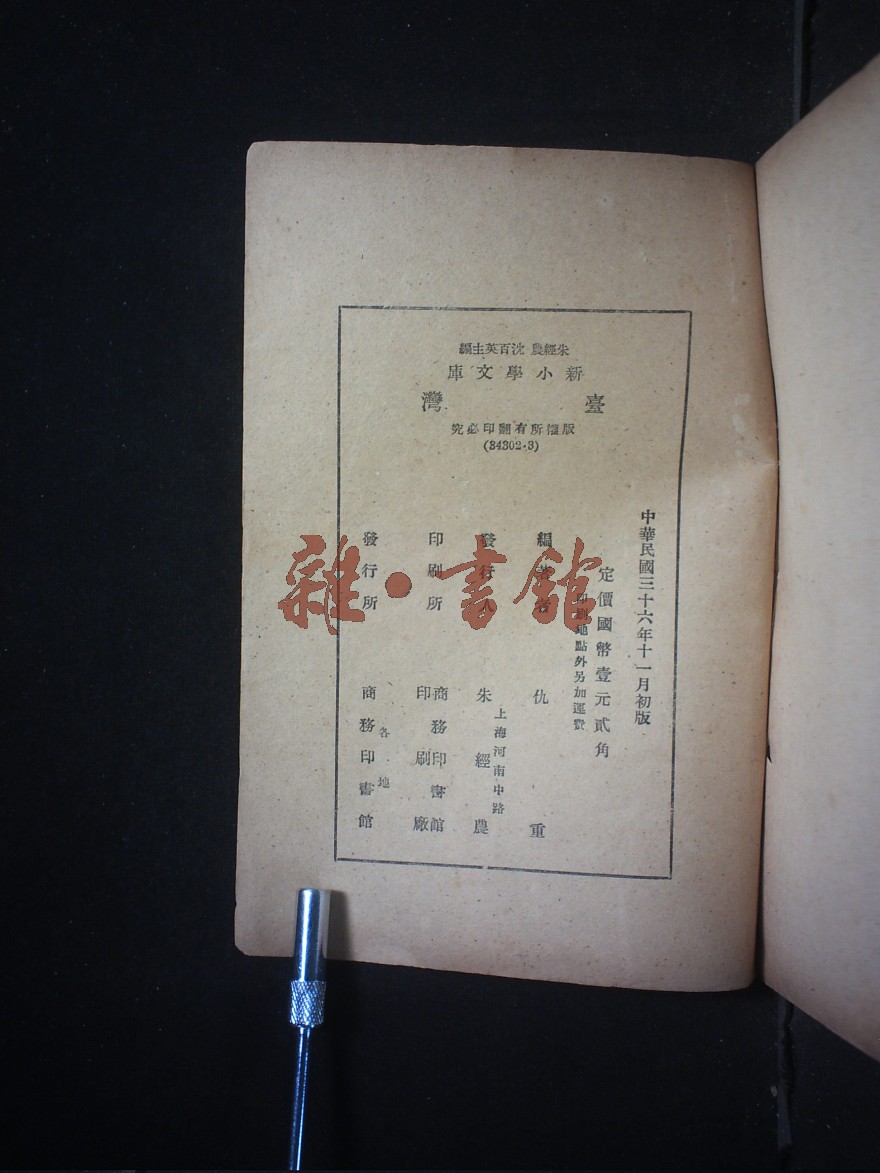 朱經農 沈百英主編
新小學文庫
臺灣
版權所有翻印必究
(34302·3)
中華民國三十六年十一月初版
定價國幣壹元貳角
印刷地點外另加運費
編著者 仇重
發行人 朱經農
上海河南中路
印刷所 商務印書館
印刷廠
發行所 各地
商務印書館
雜·書館